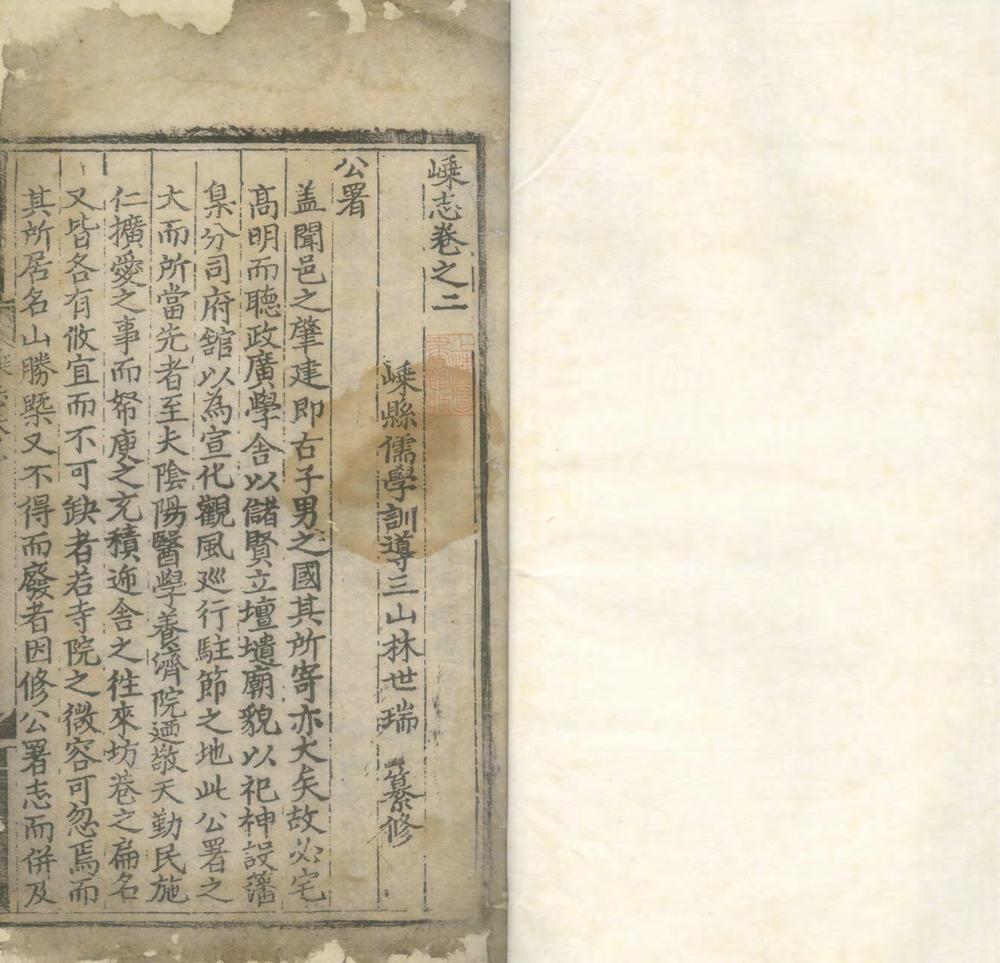 嵊志卷之二
嵊縣儒學訓導三山林世瑞 纂修
公署
盖聞邑之肇建即古子男之國其所寄亦大矣故必宅
髙明而聽政廣學舍以儲賢立壇壝廟貌以祀神設藩
臬分司府舘以為宣化觀風廵行駐節之地此公署之
大而所當先者至夫隂陽醫學養濟院廼敬天勤民施
仁擴愛之事而帑庾之充積遞舍之徃來坊巷之扁名
又皆各有攸宜而不可缺者若寺院之微容可忽焉而
其所居名山勝槩又不得而廢者因修公署志而併及